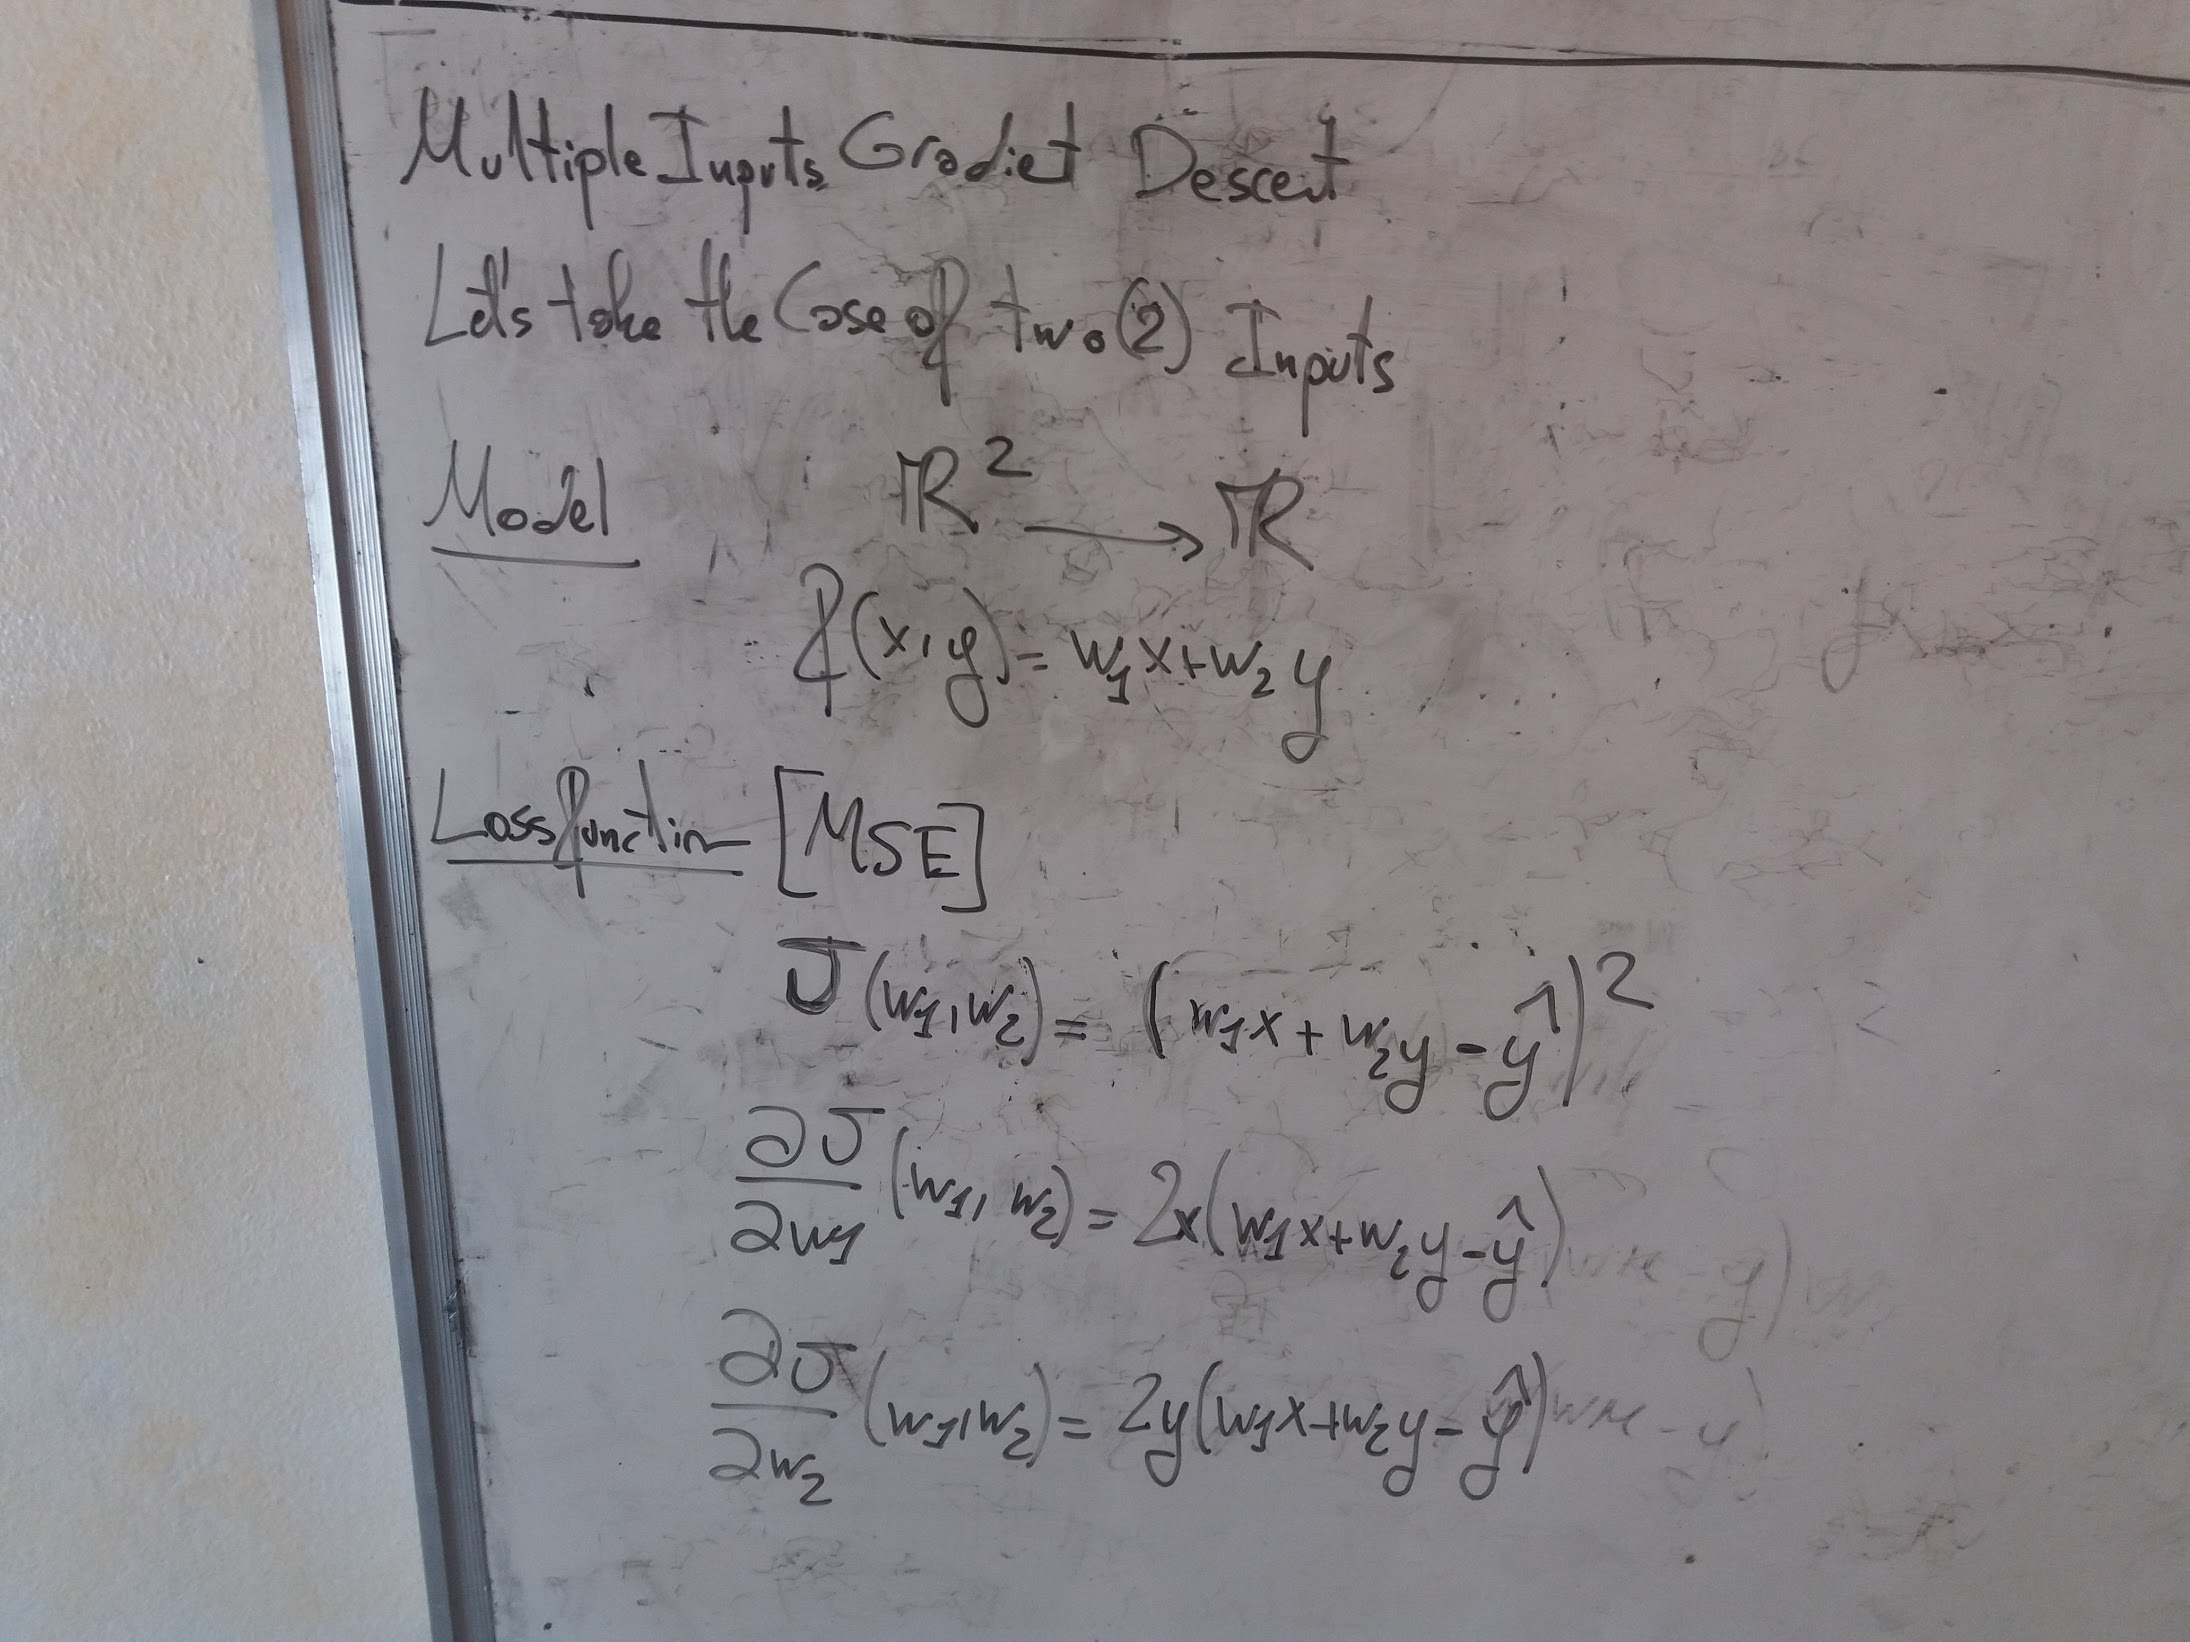 Multiple Inputs Gradiet Descent
Let's take the Case of two(2) Inputs
Model ℝ² → ℝ
f(x,y) = w₁x+w₂y
Loss function [MSE]
J(w₁,w₂) = (w₁x + w₂y - ŷ)²
∂J/∂w₁ (w₁, w₂) = 2x(w₁x+w₂y-ŷ)
∂J/∂w₂ (w₁,w₂) = 2y(w₁x+w₂y-ŷ)